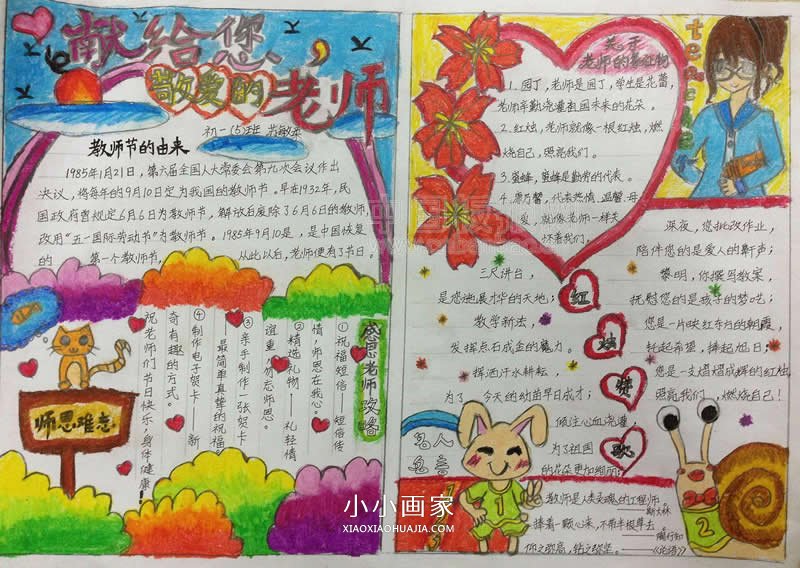 献给您、
敬爱的老师
初一(5)班
教师节的由来
1985年1月21日，第六届全国人大常委会第九次会议作出
决议，将每年的9月10日定为我国的教师节。早在1932年，民
国政府曾规定6月6日为教师节，解放后废除了6月6日的教师节，
改用“五一国际劳动节”为教师节。1985年9月10是，是中国恢复
的 第一个教师节， 从此以后，老师便有了节日。
感恩老师攻略
①祝福短信——短信传
情，师恩在我心。
②精选礼物——礼轻情
谊重，勿忘师恩。
③亲手制作一张贺卡——
最简单真挚的祝福。
④制作电子贺卡——新
奇有趣的方式。
祝老师们节日快乐，身体健康！
师恩难忘
关于
老师的象征物
1.园丁，老师是园丁，学生是花蕾，
老师辛勤浇灌祖国未来的花朵。
2.红烛，老师就像一根红烛，燃
烧自己，照亮我们。
3.蜜蜂，蜜蜂是勤劳的代表。
4.康乃馨，代表热情、温馨、母
爱，就像老师一样关
怀着我们。
teacher
三尺讲台，
是您施展才华的天地；
教学新法，
发挥点石成金的魔力。
挥洒汗水耕耘，
为了 今天的幼苗早日成才；
倾注心血浇灌，
为了祖国
的花朵更加绚丽；
红
烛
赞
歌
深夜，您批改作业，
陪伴您的是爱人的鼾声；
黎明，你撰写教案，
抚慰您的是孩子的梦呓；
您是一片映红夸父的朝霞，
托起希望，捧起旭日；
您是一支熠熠成辉的红烛，
照亮我们，燃烧自己！
名人
名言
教师是人类灵魂的工程师。
——斯大林
捧着一颗心来，不带半根草去。
——陶行知
仰之弥高，钻之弥坚。——《论语》
1
2
小小画家
XIAOXIAOHUAJIA.COM